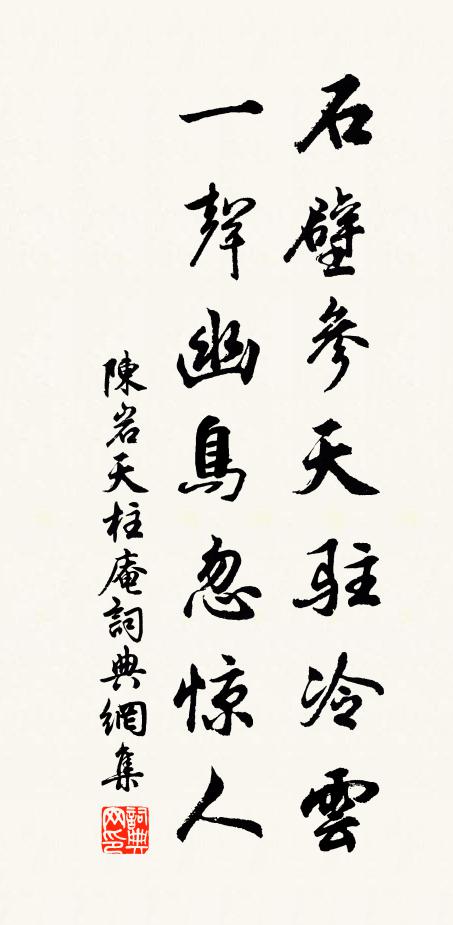 石壁參天駐冷雲
一聲幽鳥忽惊人
陳岩天柱庵詞典網集
詞典网印